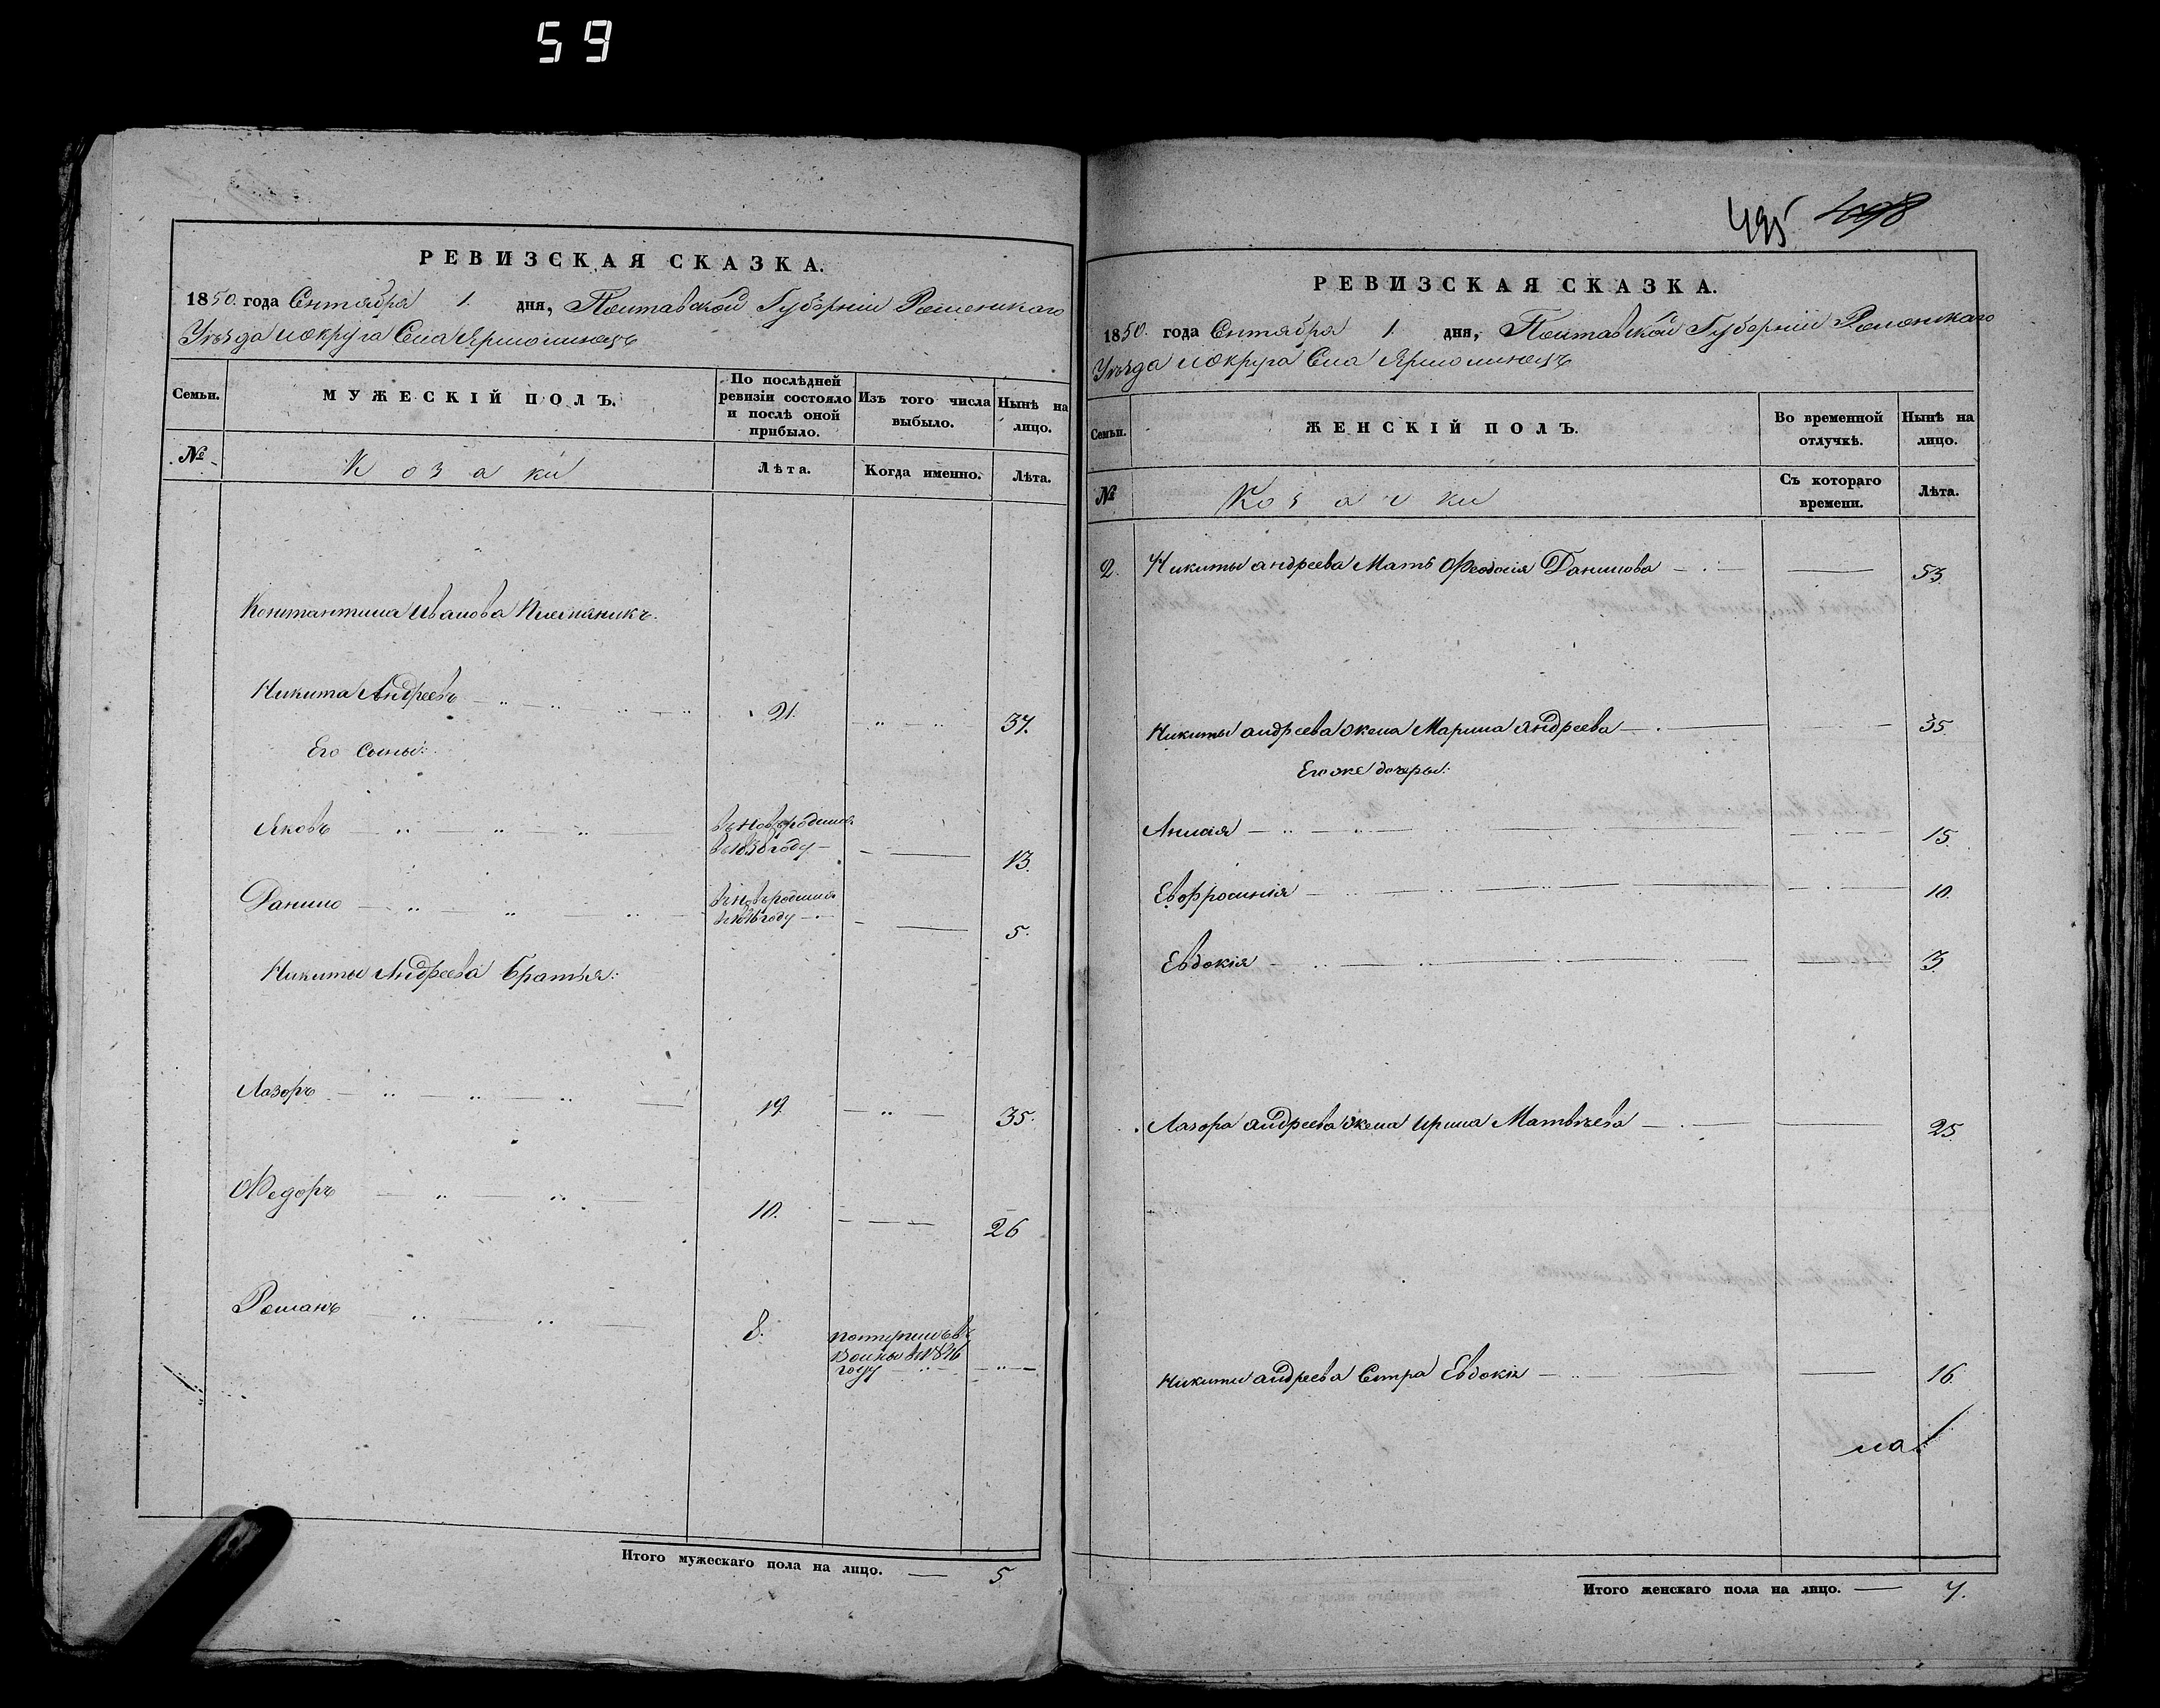 59
РЕВИЗСКАЯ СКАЗКА.
1850. года Сентября 1. дня, Полтавской Губерніи Роменскаго
Уѣзда и округа Села Ярмолинецъ
Семьи.
МУЖЕСКІЙ ПОЛЪ.
По послѣдней ревизіи состояло и послѣ оной прибыло.
Изъ того числа выбыло.
Нынѣ на лицо.
№
Козаки
Лѣта.
Когда именно.
Лѣта.
Константина Иванова Племяникъ.
Никита Андреевъ 21. 37.
Его сыны:
Яковъ 13.
Данило 5.
Никиты Андреева Братья:
Лазоръ 19. 35.
Федоръ 10. 26
Романъ 8.
году
Итого мужескаго пола на лицо. 5
495 498
РЕВИЗСКАЯ СКАЗКА.
1850. года Сентября 1. дня, Полтавской Губерніи Роменскаго
Уѣзда и округа Села Ярмолинецъ
Семьи.
ЖЕНСКІЙ ПОЛЪ.
Во временной отлучкѣ.
Нынѣ на лицо.
№
Козачки
Съ котораго времени.
Лѣта.
2. Никиты андреева Мать Феодосія Данилова 53.
Никиты андреева жена Марина Андреева 35.
Его же дочери:
15.
Евфросинія 10.
Евдокія 3.
Лазора андреева жена Ирина Матвѣева 25
Никиты андреева Сестра Евдокія 16.
Итого женскаго пола на лицо. 7.